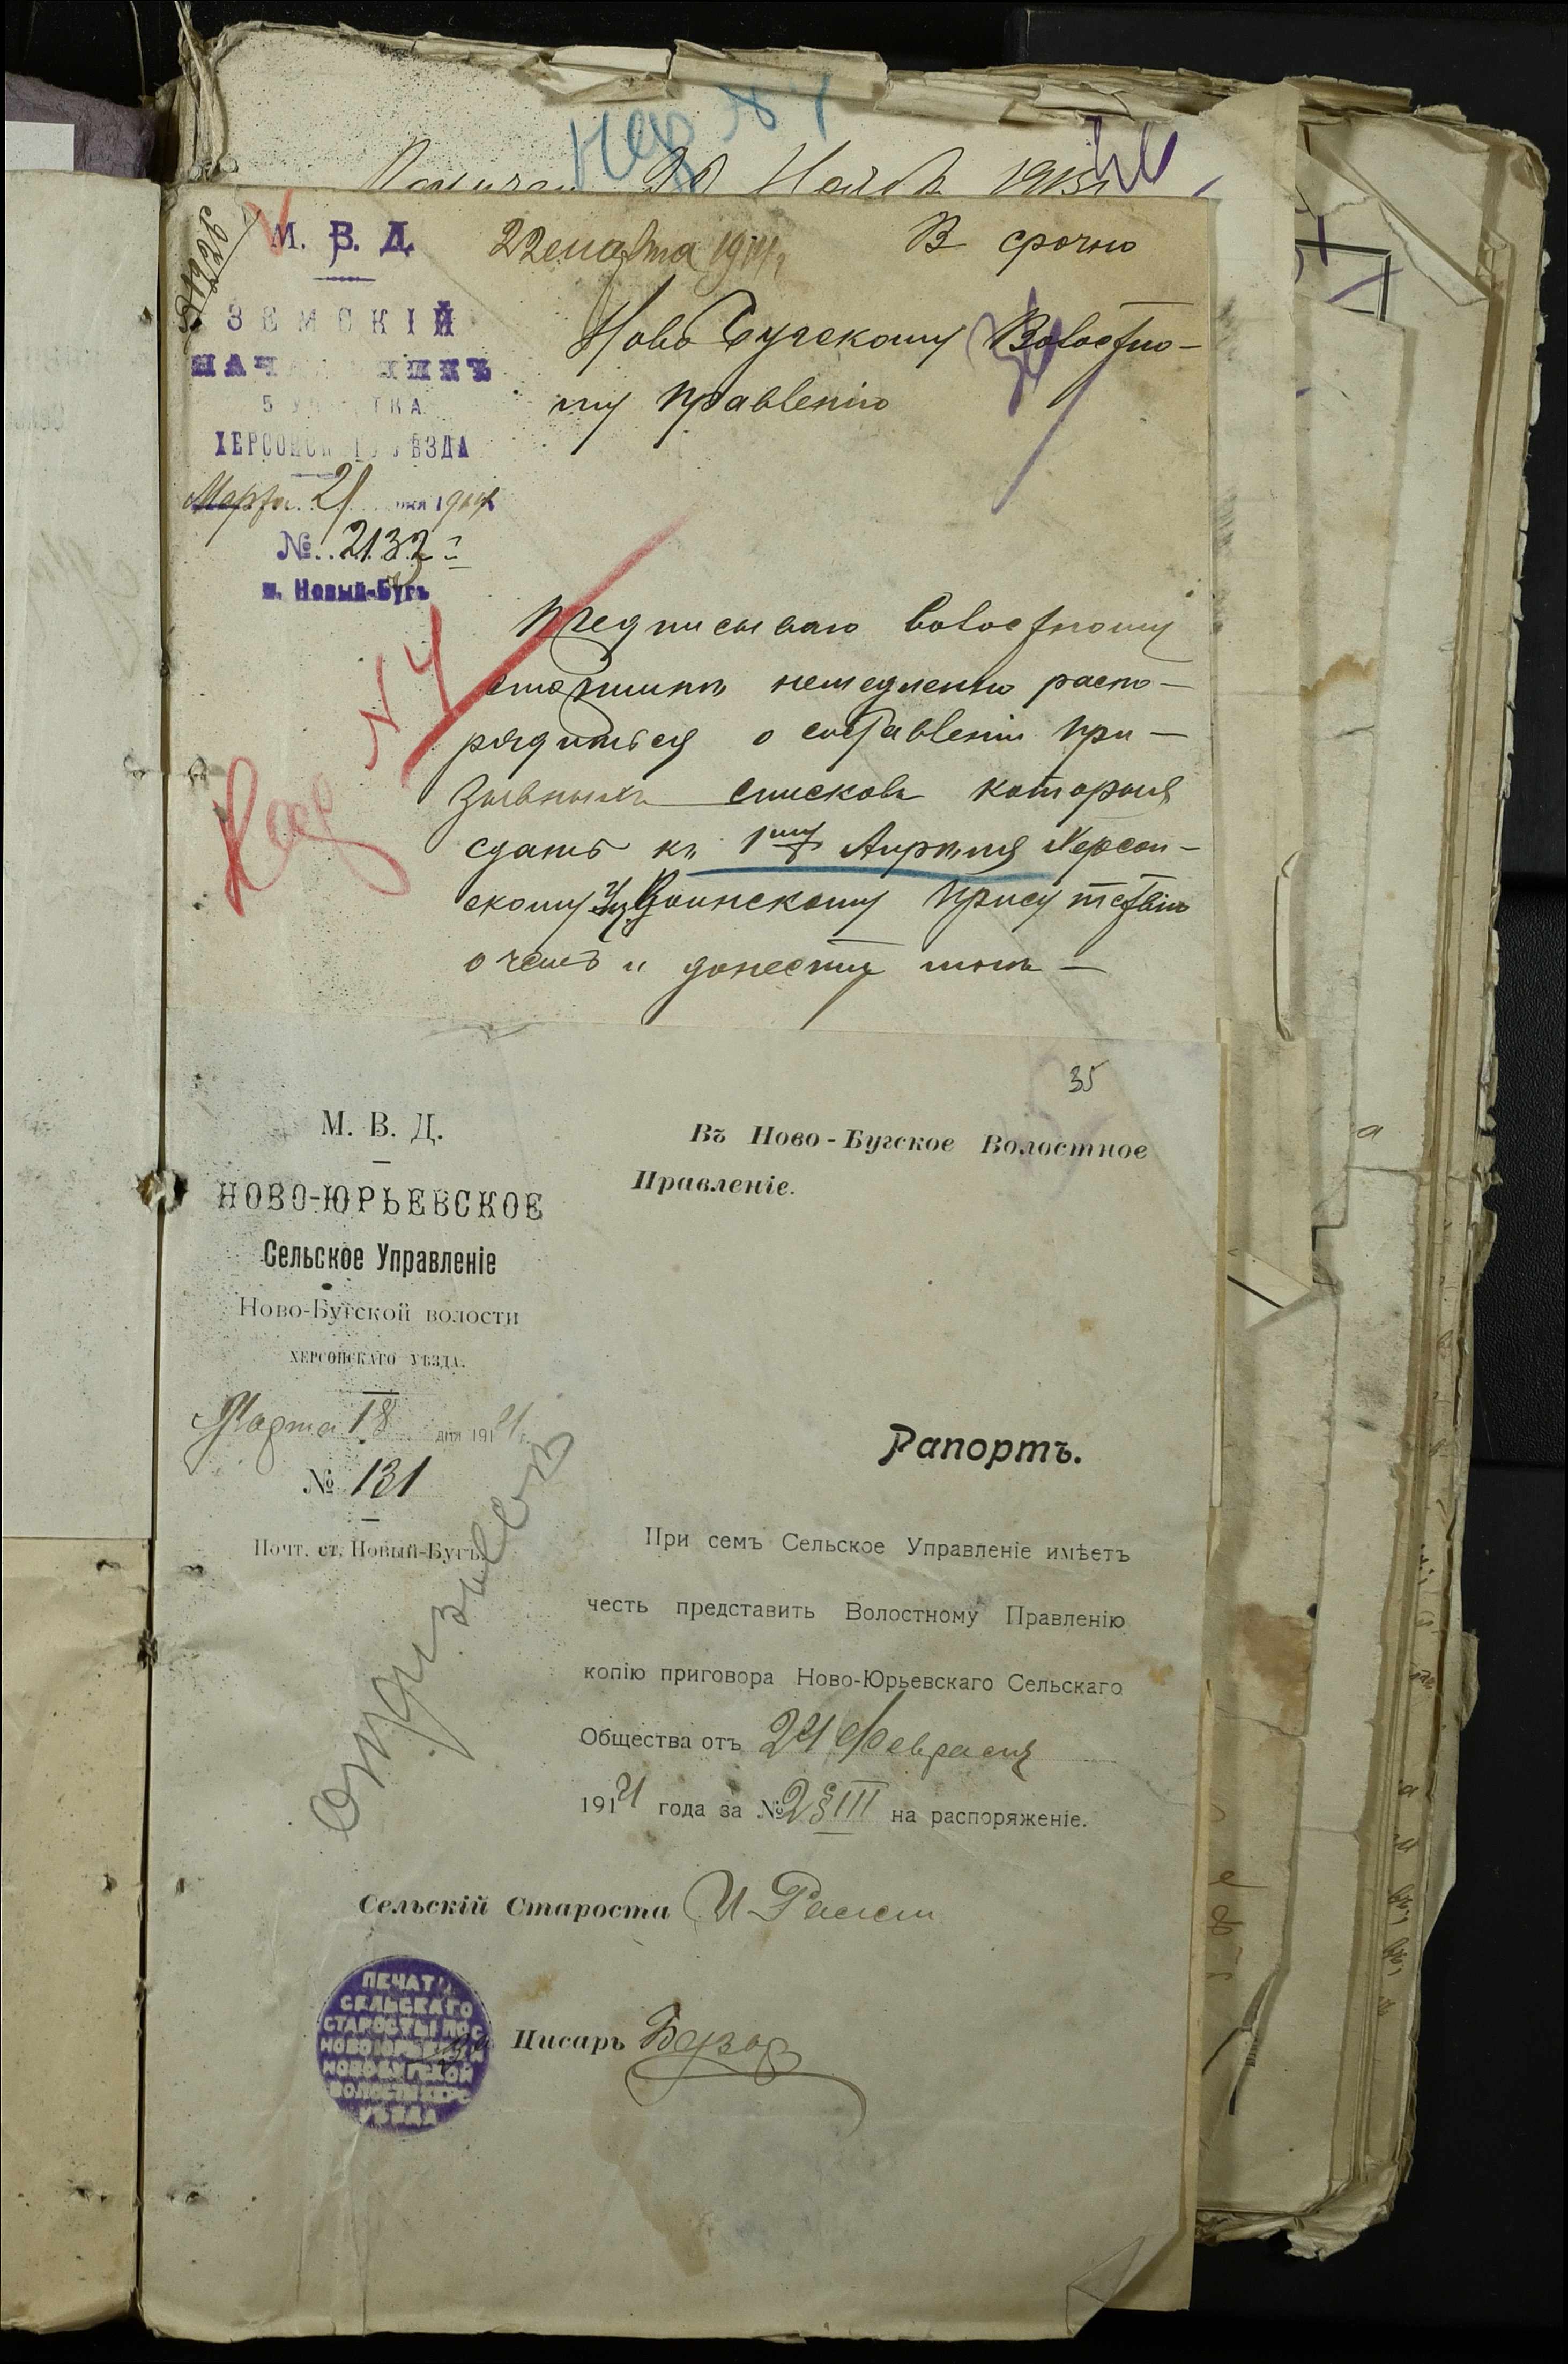 М. В. Д.
22 марта 1914 г.
В срочно
ЗЕМСКІЙ
НАЧАЛЬНИКЪ
5 УЧАСТКА
ХЕРСОНСКАГО УѢЗДА
Марта 21 дня 1914
№ 2132
м. Новый-Бугъ
Ново Бугскому Волостно-
му Правленію
Предписываю Волостному
старшинѣ немедленно распо-
рядиться о составленіи при-
зывныхъ списковъ которыя
сдать къ 1му Апрѣля Херсон-
скому Уѣз Воинскому Присутствію
о чемъ и донести мнѣ —
N 4
35
М. В. Д.
НОВО-ЮРЬЕВСКОЕ
Сельское Управленіе
Ново-Бугской волости
ХЕРСОНСКАГО УѢЗДА.
Марта 18 дня 1914 г.
№ 131
Почт. ст. Новый-Бугъ.
Въ Ново-Бугское Волостное
Правленіе.
Рапортъ.
При семъ Сельское Управленіе имѣетъ
честь представить Волостному Правленію
копію приговора Ново-Юрьевскаго Сельскаго
Общества отъ 24 Февраля
1914 года за № 2 § III на распоряженіе.
Сельскій Староста
Писарь
ПЕЧАТЬ
СЕЛЬСКАГО
СТАРОСТЫ ПОС
НОВОЮРЬЕВКИ
НОВОБУГСКОЙ
ВОЛОСТИ ХЕРС
УѢЗДА